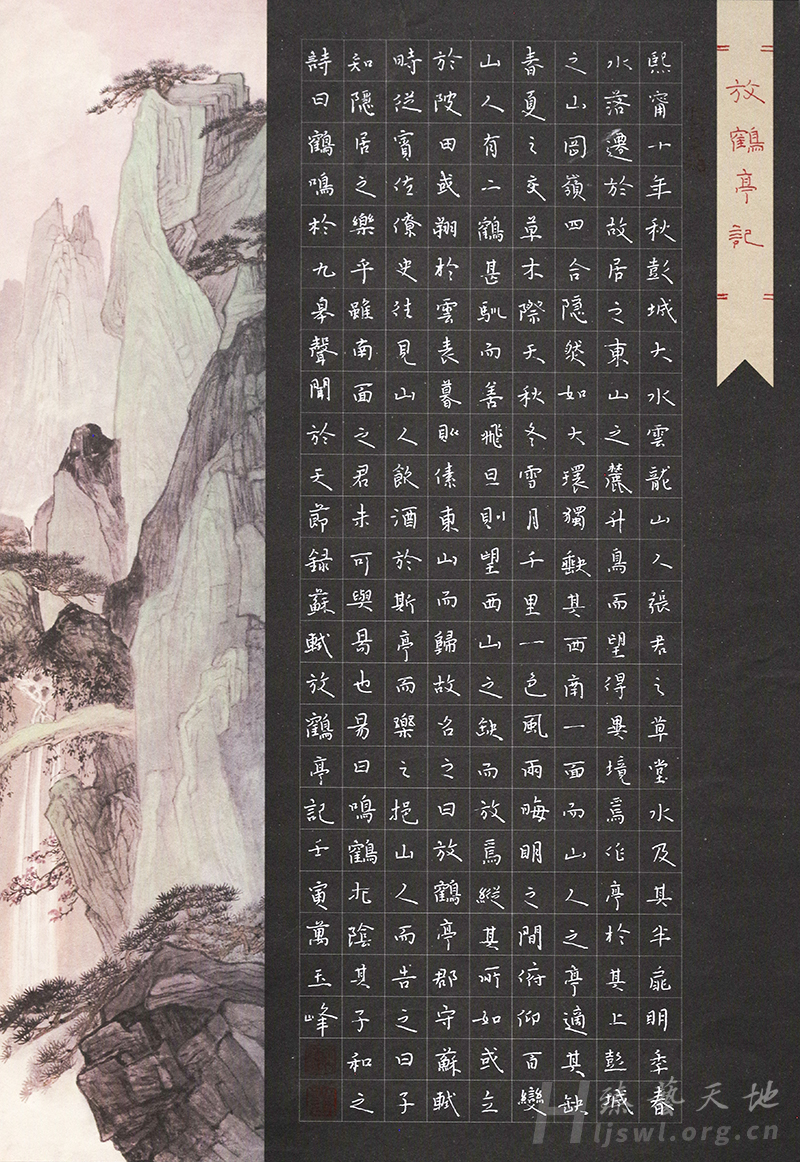 放鶴亭記
熙甯十年秋彭城大水雲龍山人張君之草堂水及其半扉明季春
水落遷於故居之東山之麓升鳥而望得異境焉作亭於其上彭城
之山岡嶺四合隱然如大環獨缺其西南一面而山人之亭適其缺
春夏之交草木際天秋冬雪月千里一色風雨晦明之間俯仰百變
山人有二鶴甚馴而善飛旦則望西山之缺而放焉縱其所如或立
於陂田或翔於雲表暮則傃東山而歸故名之曰放鶴亭郡守蘇軾
時從賓佐僚史往見山人飲酒於斯亭而樂之挹山人而告之曰子
知隱居之樂乎雖南面之君未可與易也易曰鳴鶴在陰其子和之
詩曰鶴鳴於九皋聲聞於天節録蘇軾放鶴亭記壬寅萬玉峰
臻藝天地
Hljswl.org.cn